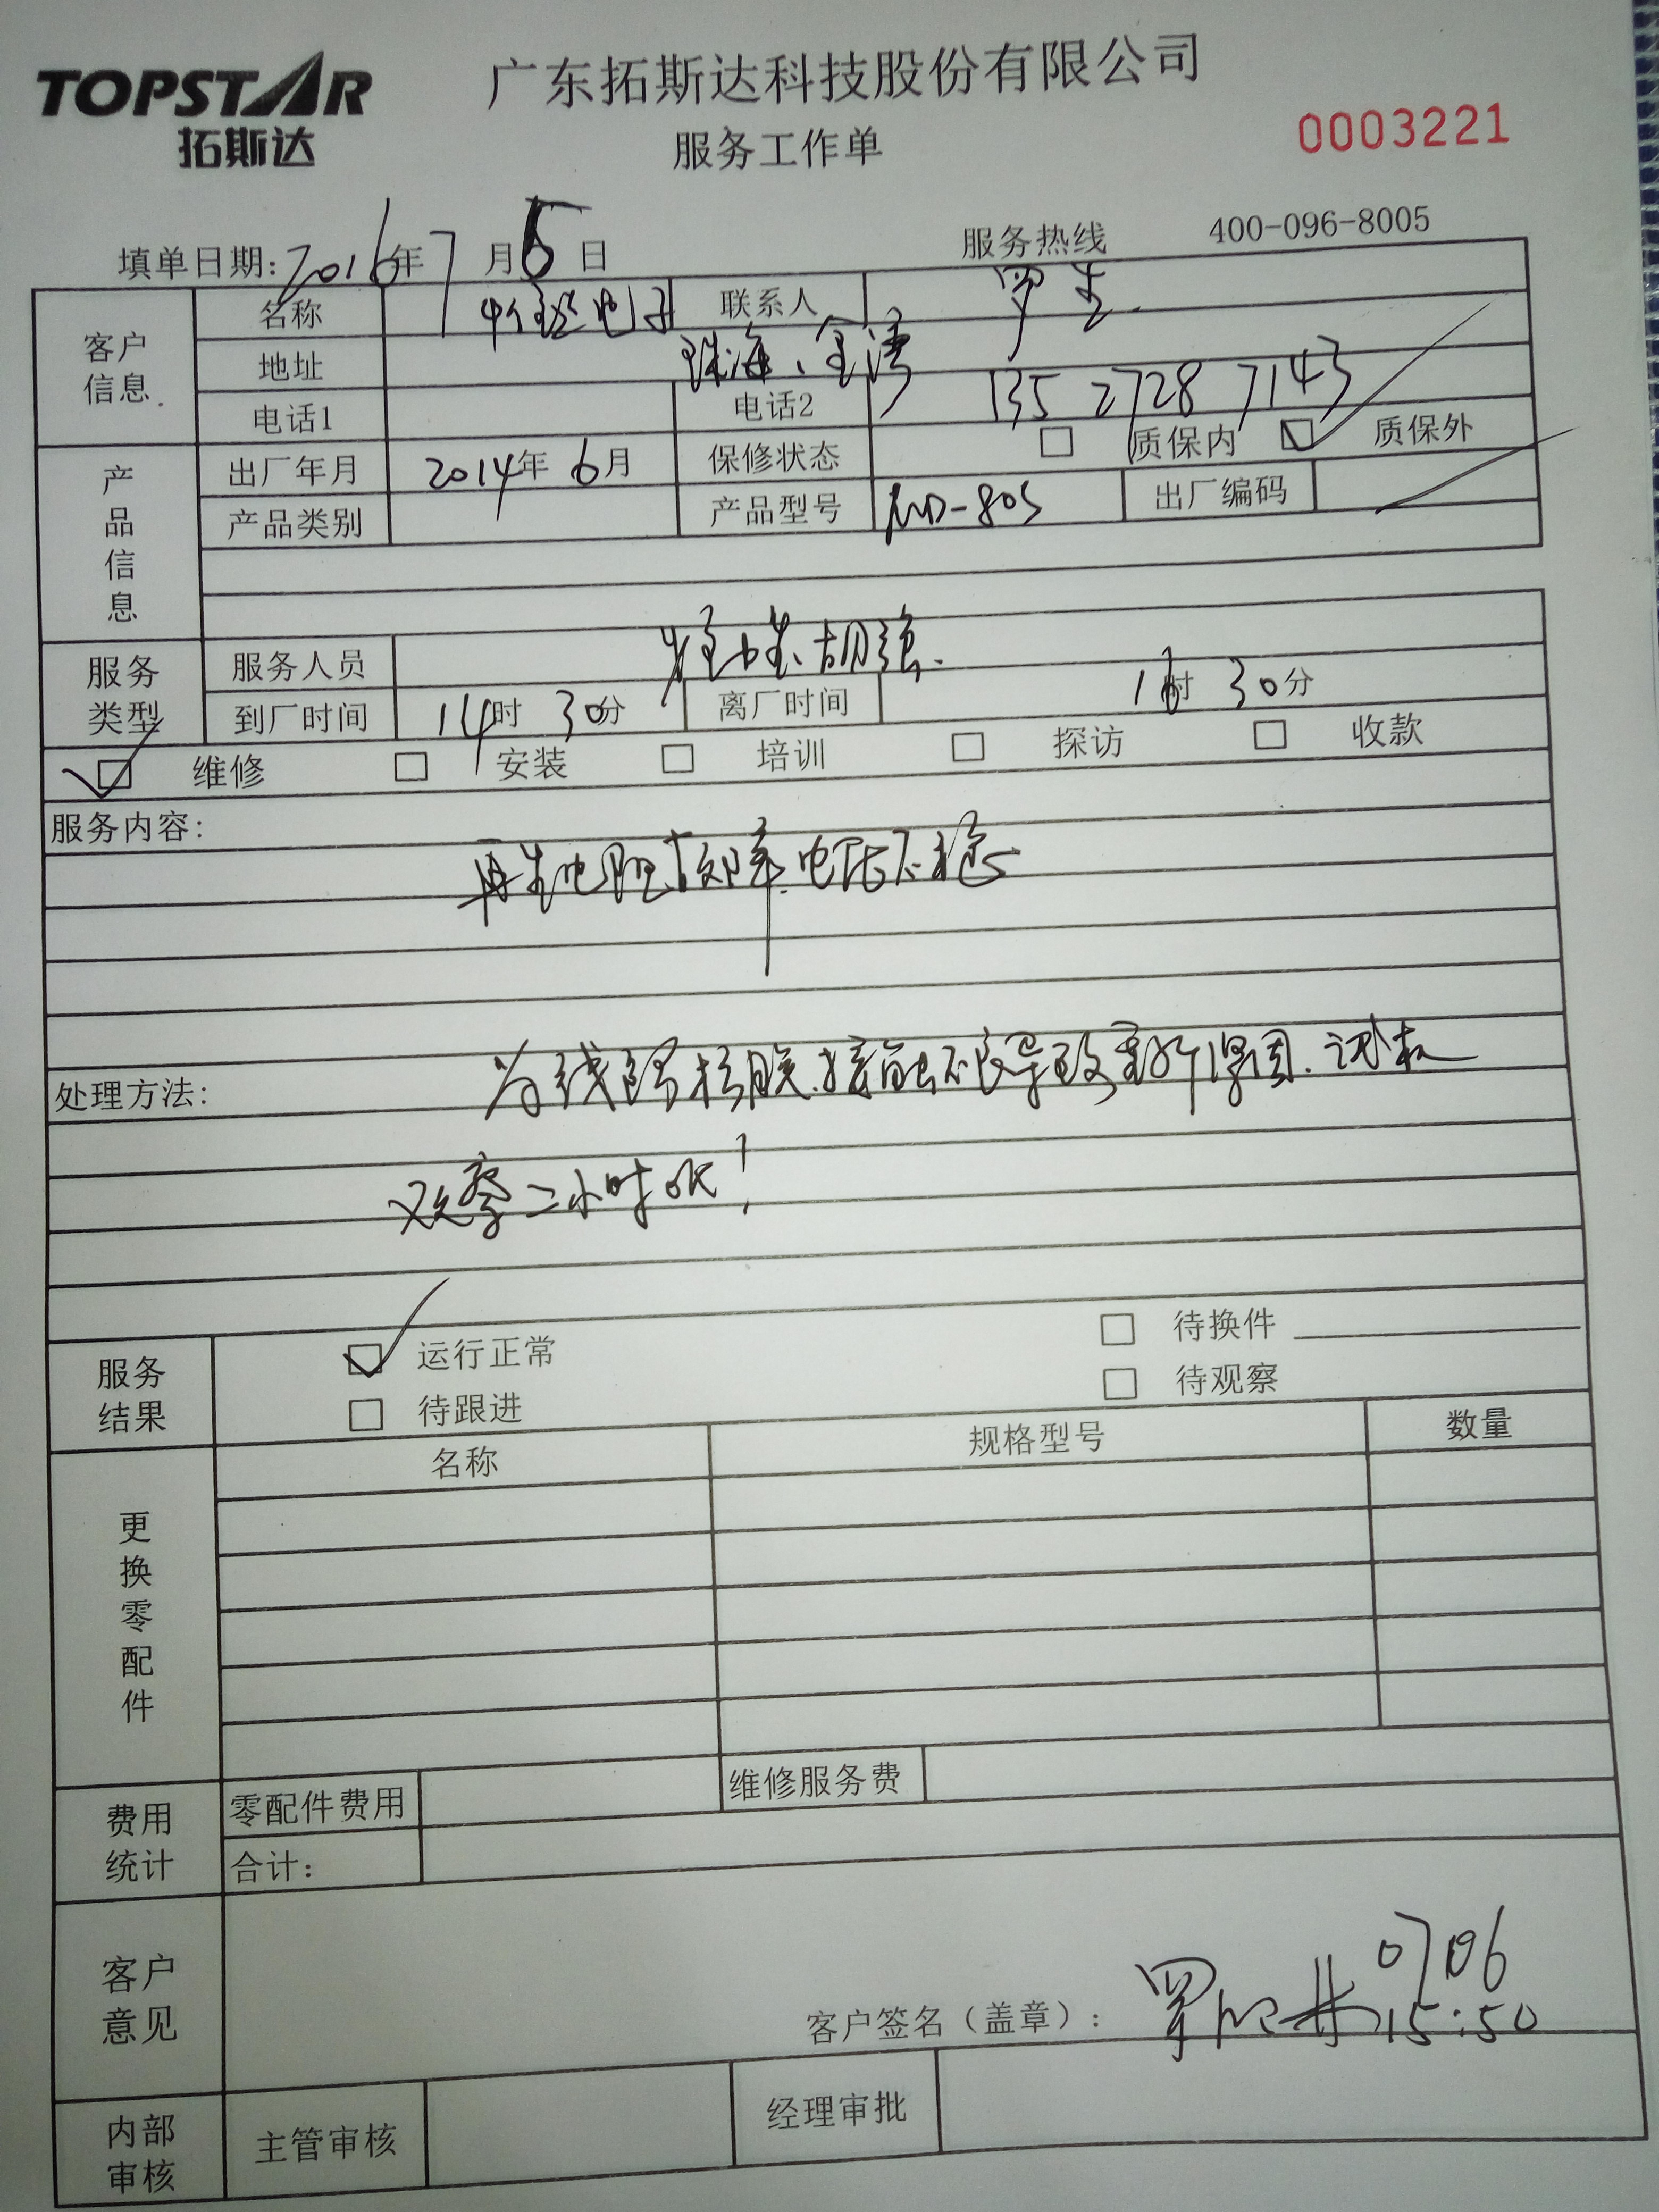 TOPSTAR
拓斯达
广东拓斯达科技股份有限公司
服务工作单
0003221
填单日期: 2016年 7 月 6 日
服务热线 400-096-8005
客户信息
名称 电子 联系人 罗生
地址 珠海、金湾
电话1 电话2 135 2728 7143
产品信息
出厂年月 2014年 6月 保修状态 □ 质保内 ☑ 质保外
产品类别 产品型号 MD-80S 出厂编码
服务类型
服务人员 胡强.
到厂时间 14时 30分 离厂时间 时 30分
☑ 维修 □ 安装 □ 培训 □ 探访 □ 收款
服务内容:
再生电阻故障.电压不稳
处理方法: 为线路松脱.接触不良导致.重新 固.试机
观察二小时OK!
服务结果
☑ 运行正常 □ 待换件
□ 待跟进 □ 待观察
更换零配件
名称 规格型号 数量
费用统计
零配件费用 维修服务费
合计:
客户意见
0706
客户签名（盖章）: 罗 15:50
内部审核
主管审核 经理审批